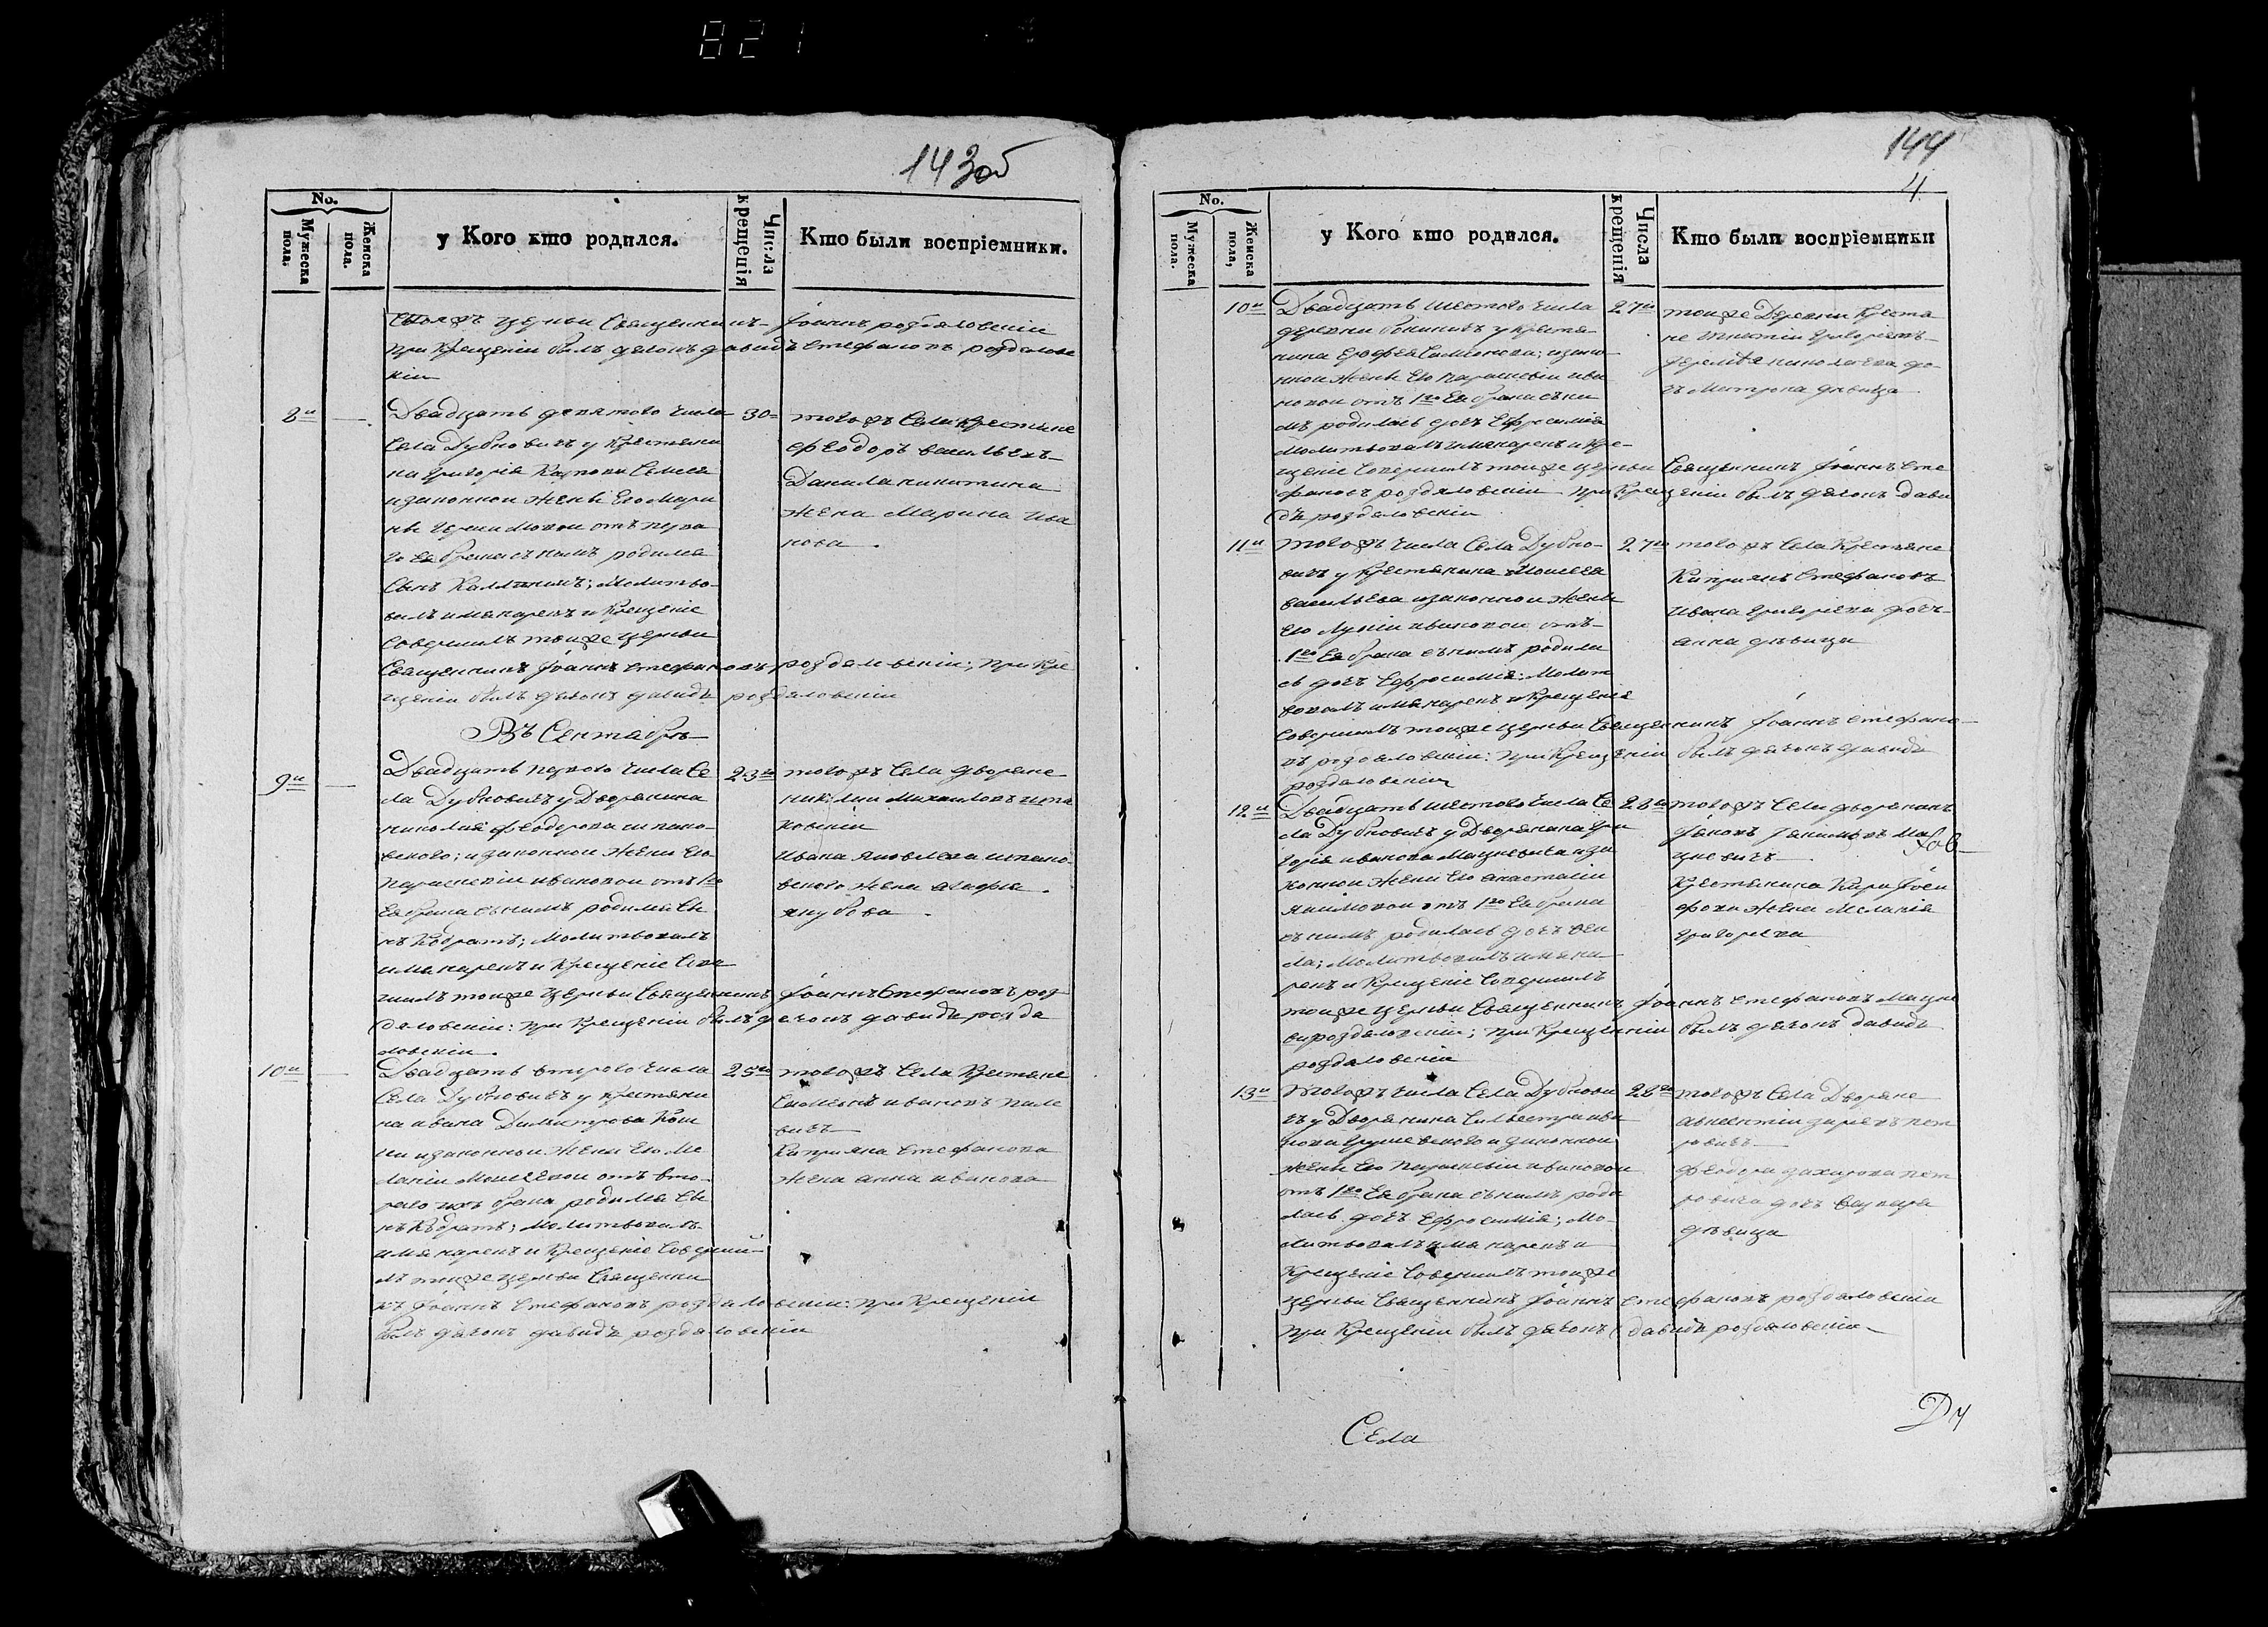 821
143об
No.
Мужеска пола.
Женска пола.
у Кого кто родился.
Числа крещенія
Кто были воспріемники.
церкви Священникъ Іоаннъ роздяловскіи
при Крещеніи былъ дячокъ давидъ Стефановъ роздялов
скіи
8й
Двадцать девятого числа 30
Села Дубновичъ у Крестяни
на Григорія Карпова
изаконной жены Его Мари
отъ перва
го Ея брака снимъ родился
Сынъ Каллиникъ; Молитво
валъ имянарекъ и Крещеніе
Совершилъ тоиже церкви
Священникъ Іоаннъ Стефановъ роздяловскіи; при Кре
щеніи былъ дячокъ давидъ роздяловскіи
тогожъ Села Крестяне
Феодоръ васильевъ
Данила никитина
жена Марина Ива
нова.
Въ Сентябрѣ
9й
Двадцать перваго числа Се 23го
ла Дубновичъ у Дворянина
николая феодорова шпако
вского; изаконной жены Его
Параскевіи ивановой отъ 1го
Ея брака снимъ родился Сы
нъ Кодратъ; Молитвовалъ
имянарекъ и Крещеніе Сове
шилъ тоиже церкви Священникъ Іоаннъ Стефановъ роз
дяловскіи: при Крещеніи былъ дячокъ давидъ роздя
ловскіи.
тогожъ Села дворяне
Михайловъ шпа
ковскіи
ивана яковлева шпако
вского жена агафія
якубова.
10й
Двадцать второго числа 25го
Села Дубновичъ у Крестяни
на ивана Димитрова
изаконной жены Его Ме
ланіи Моисеевой отъ вто
раго ихъ брака родился Сы
нъ Кодратъ; Молитвовалъ
имянарекъ и Крещеніе Соверши
лъ тоиже церкви Священни
къ Іоаннъ Стефановъ роздяловскіи: при Крещеніи
былъ дячокъ давидъ роздяловскіи
тогожъ Села Крестяне
ивановъ
Киприяна Стефанова
жена анна иванова
144
4
No.
Мужеска пола.
Женска пола,
у Кого кто родился.
Числа крещенія
Кто были воспріемники
10й
Двадцать шестого числа 27го
деревни у Крестя
нина Ерофея Симонова; изако
нной жены Его Параскевіи ива
новой отъ 1го Ея брака сни
мъ родилась дочь Ефросинія
Молитвовалъ имянарекъ и Кре
щеніе Совершилъ тоиже церкви Священникъ Іоаннъ Сте
фановъ роздяловскіи при Крещеніи былъ дячокъ дави
дъ роздяловскіи
тоиже Деревни Креста
не Игнатіи Григоріевъ
до
чъ дѣвица
11й
Тогожъ числа Села Дубно 27го
вичъ у Крестянина Моисея
васильева изаконной жены
Его Лукіи ивановой отъ
1го Ея брака снимъ родила
сь дочъ Ефросинія: Молит
вовалъ имянарекъ и Крещеніе
Совершилъ тоиже церкви Священникъ Іоаннъ Стефано
въ роздяловскіи: при Крещеніи былъ дячокъ давидъ
роздяловскіи
тогожъ Села Крестяне
Киприянъ Стефановъ
Ивана Григоріева дочъ
анна дѣвица
12й
Двадцать шестого числа Се 28го
ла Дубновичъ у Дворянина Гри
горія иванова Мацкевича иза
конной жены Его анастасіи
якимовой отъ 1го Ея брака
снимъ родилась дочъ Фек
ла; Молитвовалъ имяна
рекъ и Крещеніе Совершилъ
тоиже церкви Священникъ Іоаннъ Стефановъ
роздяловскіи; при Крещеніи былъ дячокъ давидъ
роздяловскіи
тогожъ Села дворянинъ
Ма
цкевичъ
Крестянина
жена Меланія
Григорьева
13й
Тогожъ числа Села Дубнови 28го
чъ у Дворянина Силвестра ива
нова Грушевского изаконной
жены Его Параскевіи ивановой
отъ 1го Ея брака снимъ роди
лась дочъ Ефросинія; Мо
литвовалъ имянарекъ и
Крещеніе Совершилъ тоиже
церкви Священникъ Іоаннъ Стефановъ роздяловскіи
при Крещеніи былъ дячокъ давидъ роздяловскіи
тогожъ Села Дворяне
пет
ровичъ
Феодора захарова пет
ровича дочъ
дѣвица
Села
Ду